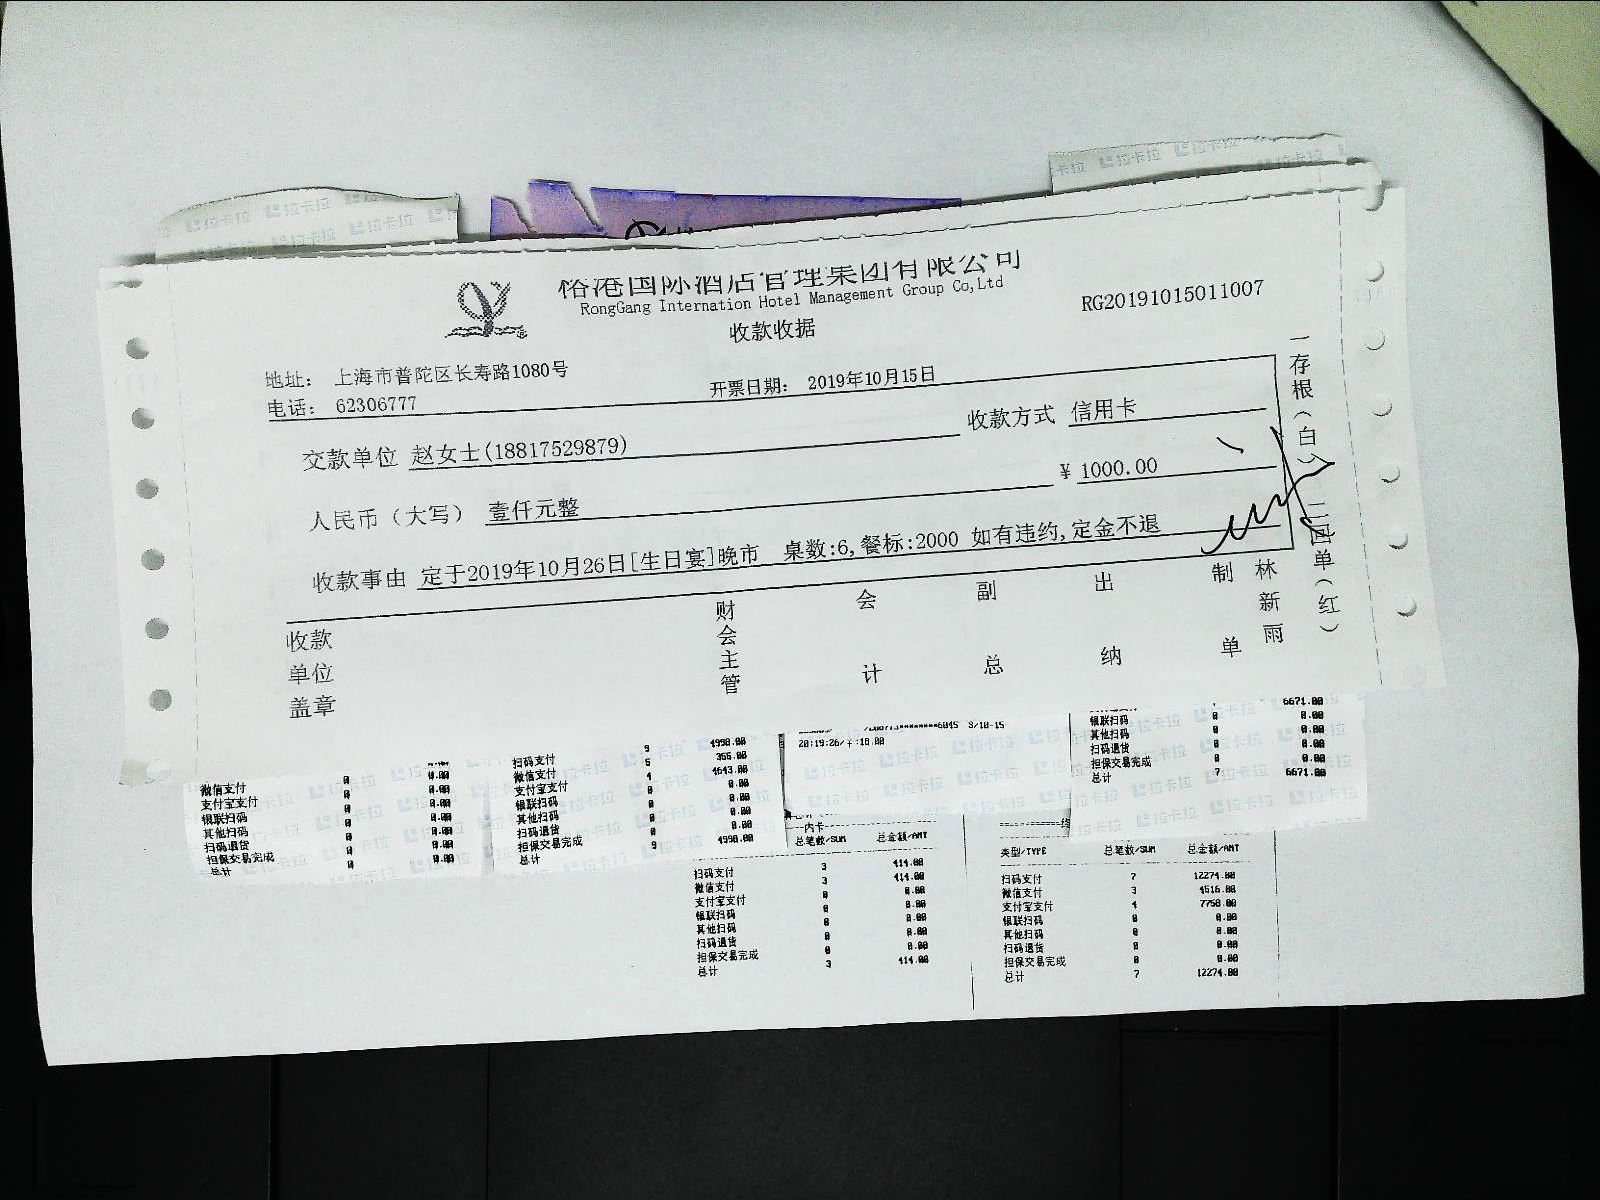 裕港国际酒店管理集团有限公司
RongGang Internation Hotel Management Group Co,Ltd
收款收据
RG20191015011007
地址： 上海市普陀区长寿路1080号
电话： 62306777
开票日期： 2019年10月15日
交款单位 赵女士(18817529879)
收款方式 信用卡
人民币（大写） 壹仟元整
¥ 1000.00
收款事由 定于2019年10月26日[生日宴]晚市 桌数:6,餐标:2000 如有违约,定金不退
收款单位盖章
财会主管
会计
副总
出纳
制单
林新雨
一存根（白） 二回单（红）
拉卡拉
微信支付 0 0.00
支付宝支付 0 0.00
银联扫码 0 0.00
其他扫码 0 0.00
扫码退货 0 0.00
担保交易完成 0 0.00
总计
扫码支付 9 4998.00
微信支付 5 355.00
支付宝支付 4 4643.00
银联扫码 0 0.00
其他扫码 0 0.00
扫码退货 0 0.00
担保交易完成 0 0.00
总计 9 4998.00
6045 S/10-15
20:19:26/
内卡
总笔数/SUM 总金额/AMT
扫码支付 3 414.00
微信支付 3 414.00
支付宝支付 0 0.00
银联扫码 0 0.00
其他扫码 0 0.00
扫码退货 0 0.00
担保交易完成 0 0.00
总计 3 414.00
6671.00
银联扫码 0 0.00
其他扫码 0 0.00
扫码退货 0 0.00
担保交易完成 0 0.00
总计 7 6671.00
类型/TYPE 总笔数/SUM 总金额/AMT
扫码支付 7 12274.00
微信支付 3 4516.00
支付宝支付 4 7758.00
银联扫码 0 0.00
其他扫码 0 0.00
扫码退货 0 0.00
担保交易完成 0 0.00
总计 7 12274.00